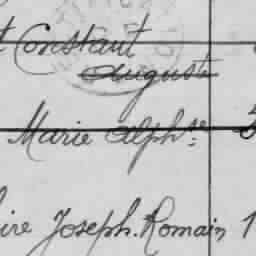 t Constant
Auguste
Marie Alphse 5
ire Joseph. Romain 1